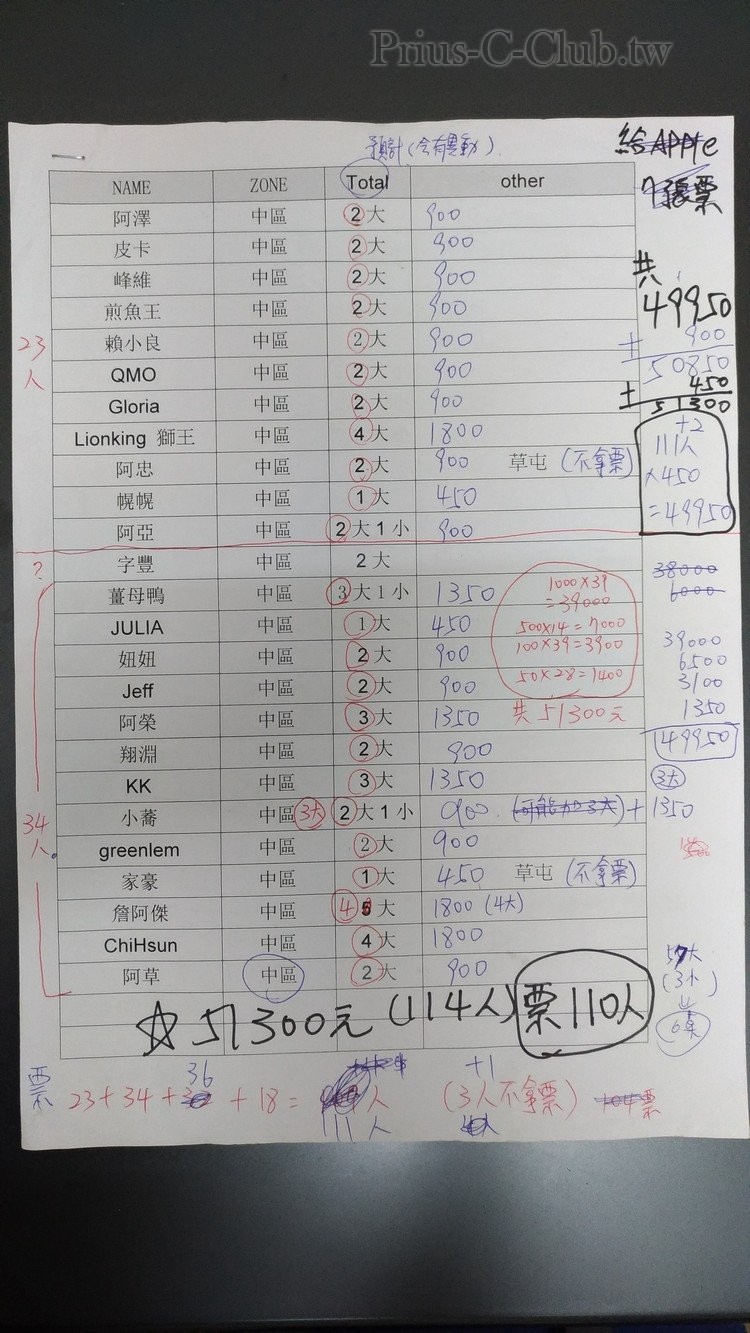 Prius-C-Club.tw
預計(含有異動)
給APPle
7張票
NAME ZONE Total other
阿澤 中區 2大 900
皮卡 中區 2大 900
峰維 中區 2大 900
煎魚王 中區 2大 900
賴小良 中區 2大 900
QMO 中區 2大 900
Gloria 中區 2大 900
Lionking 獅王 中區 4大 1800
阿忠 中區 2大 900 草屯 (不拿票)
幌幌 中區 1大 450
阿亞 中區 2大1小 900
字豐 中區 2大
薑母鴨 中區 3大1小 1350
JULIA 中區 1大 450
妞妞 中區 2大 900
Jeff 中區 2大 900
阿榮 中區 3大 1350
翔淵 中區 2大 900
KK 中區 3大 1350
小蕎 中區 3大 2大1小 900 (可能加3大) + 1350
greenlem 中區 2大 900
家豪 中區 1大 450 草屯 (不拿票)
詹阿傑 中區 4 5大 1800 (4大)
ChiHsun 中區 4大 1800
阿草 中區 2大 900
☆ 51300元 (114人) 票110人
23人
?
34人
共
49950
+ 900
50850
+ 450
51300
+2
111人
×450
=49950
1000×39
=39000
500×14=7000
100×39=3900
50×28=1400
共51300元
38000
6000
39000
6500
3100
1350
49950
3大
57大
(3小)
票
36
23+34+ +18= 人
111人
+1
(3人不拿票)
104票